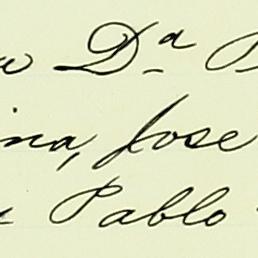 Dª
ina, Jose
Pablo